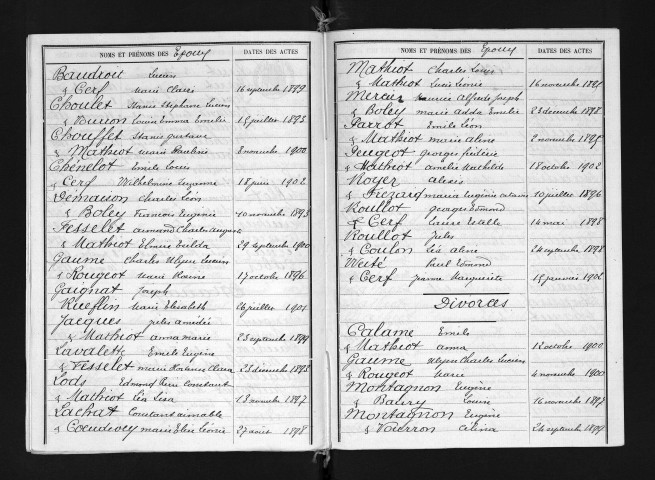 NOMS ET PRÉNOMS DES Epoux DATES DES ACTES
Baudroit Lucien
& Cerf Marie Claire 16 septembre 1899
Choulet Stanis Stéphane Lucien
& Vuvion Louise Emma Emelie 15 juillet 1893
Choufflet Stanis gustave
& Mathiot Marie Pauline 8 novembre 1900
Chénelot Emile Louis
& Cerf Wilhelmine Suzanne 18 juin 1902
Demaison Charles Léon
& Boley François Eugénie 10 novembre 1893
Fesselet armand Charles august
& Mathiot Elmire Zuilda 29 septembre 1900
Gaume Charles Ulysse Lucien
& Rougeot Marie 17 octobre 1896
Gaignat Joseph
Rueflin Marie Elisabeth 26 juillet 1901
Jacques jules amédée
& Mathiot anna marie 23 septembre 1899
Lavalette Emile Eugène
& Fesselet marie Hortense Clara 23 décembre 1893
Lods Edmond Pierre Constant
& Mathiot Léa Lisa 13 novembre 1897
Lachat Constant aimable
& Coeudevey marie Elise Léonie 27 août 1898
NOMS ET PRÉNOMS DES Epoux DATES DES ACTES
Mathiot Charles Louis
& Mathiot Lucie Léonie 16 novembre 1895
Mercier Maurice Alfred Joseph
& Boley marie Adda Emelie 23 décembre 1898
Parrot Emile Léon
& Mathiot marie aline 2 novembre 1895
Peugeot georges frédéric
& Mathiot amélie Mathilde 18 octobre 1902
Royer alexis
& Frezard maria Eugénie 10 juillet 1896
Roullot Georges Edmond
& Cerf Laure Estelle 14 mai 1898
Roullot Jules
& Coulon Léa aline 24 septembre 1898
Weité Paul Edmond
& Cerf Jeanne Marguerite 15 janvier 1902
Divorces
Calame Emile
& Mathiot anna 12 octobre 1900
Gaume Ulysse Charles Lucien
& Rougeot Marie 4 novembre 1900
Montagnon Eugène
& Baury Louise 16 novembre 1897
Montagnon Eugène
& Vuerron Célina 24 septembre 1899